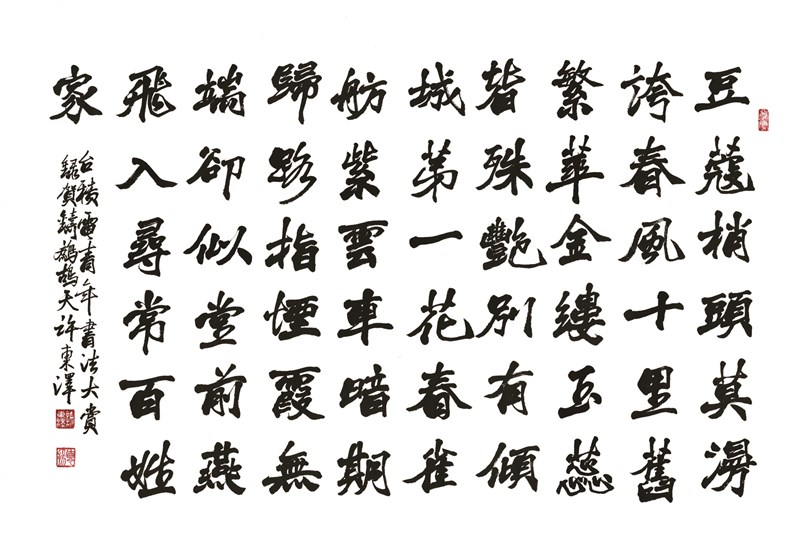 豆蔻梢頭莫漫
誇春風十里舊
繁華金縷玉蕊
皆殊艷別有傾
城第一花春雀
舫紫雲車暗期
歸路指煙霞無
端卻似堂前燕
飛入尋常百姓
家
台積電青年書法大賞
錄賀鑄鷓鴣天許東澤